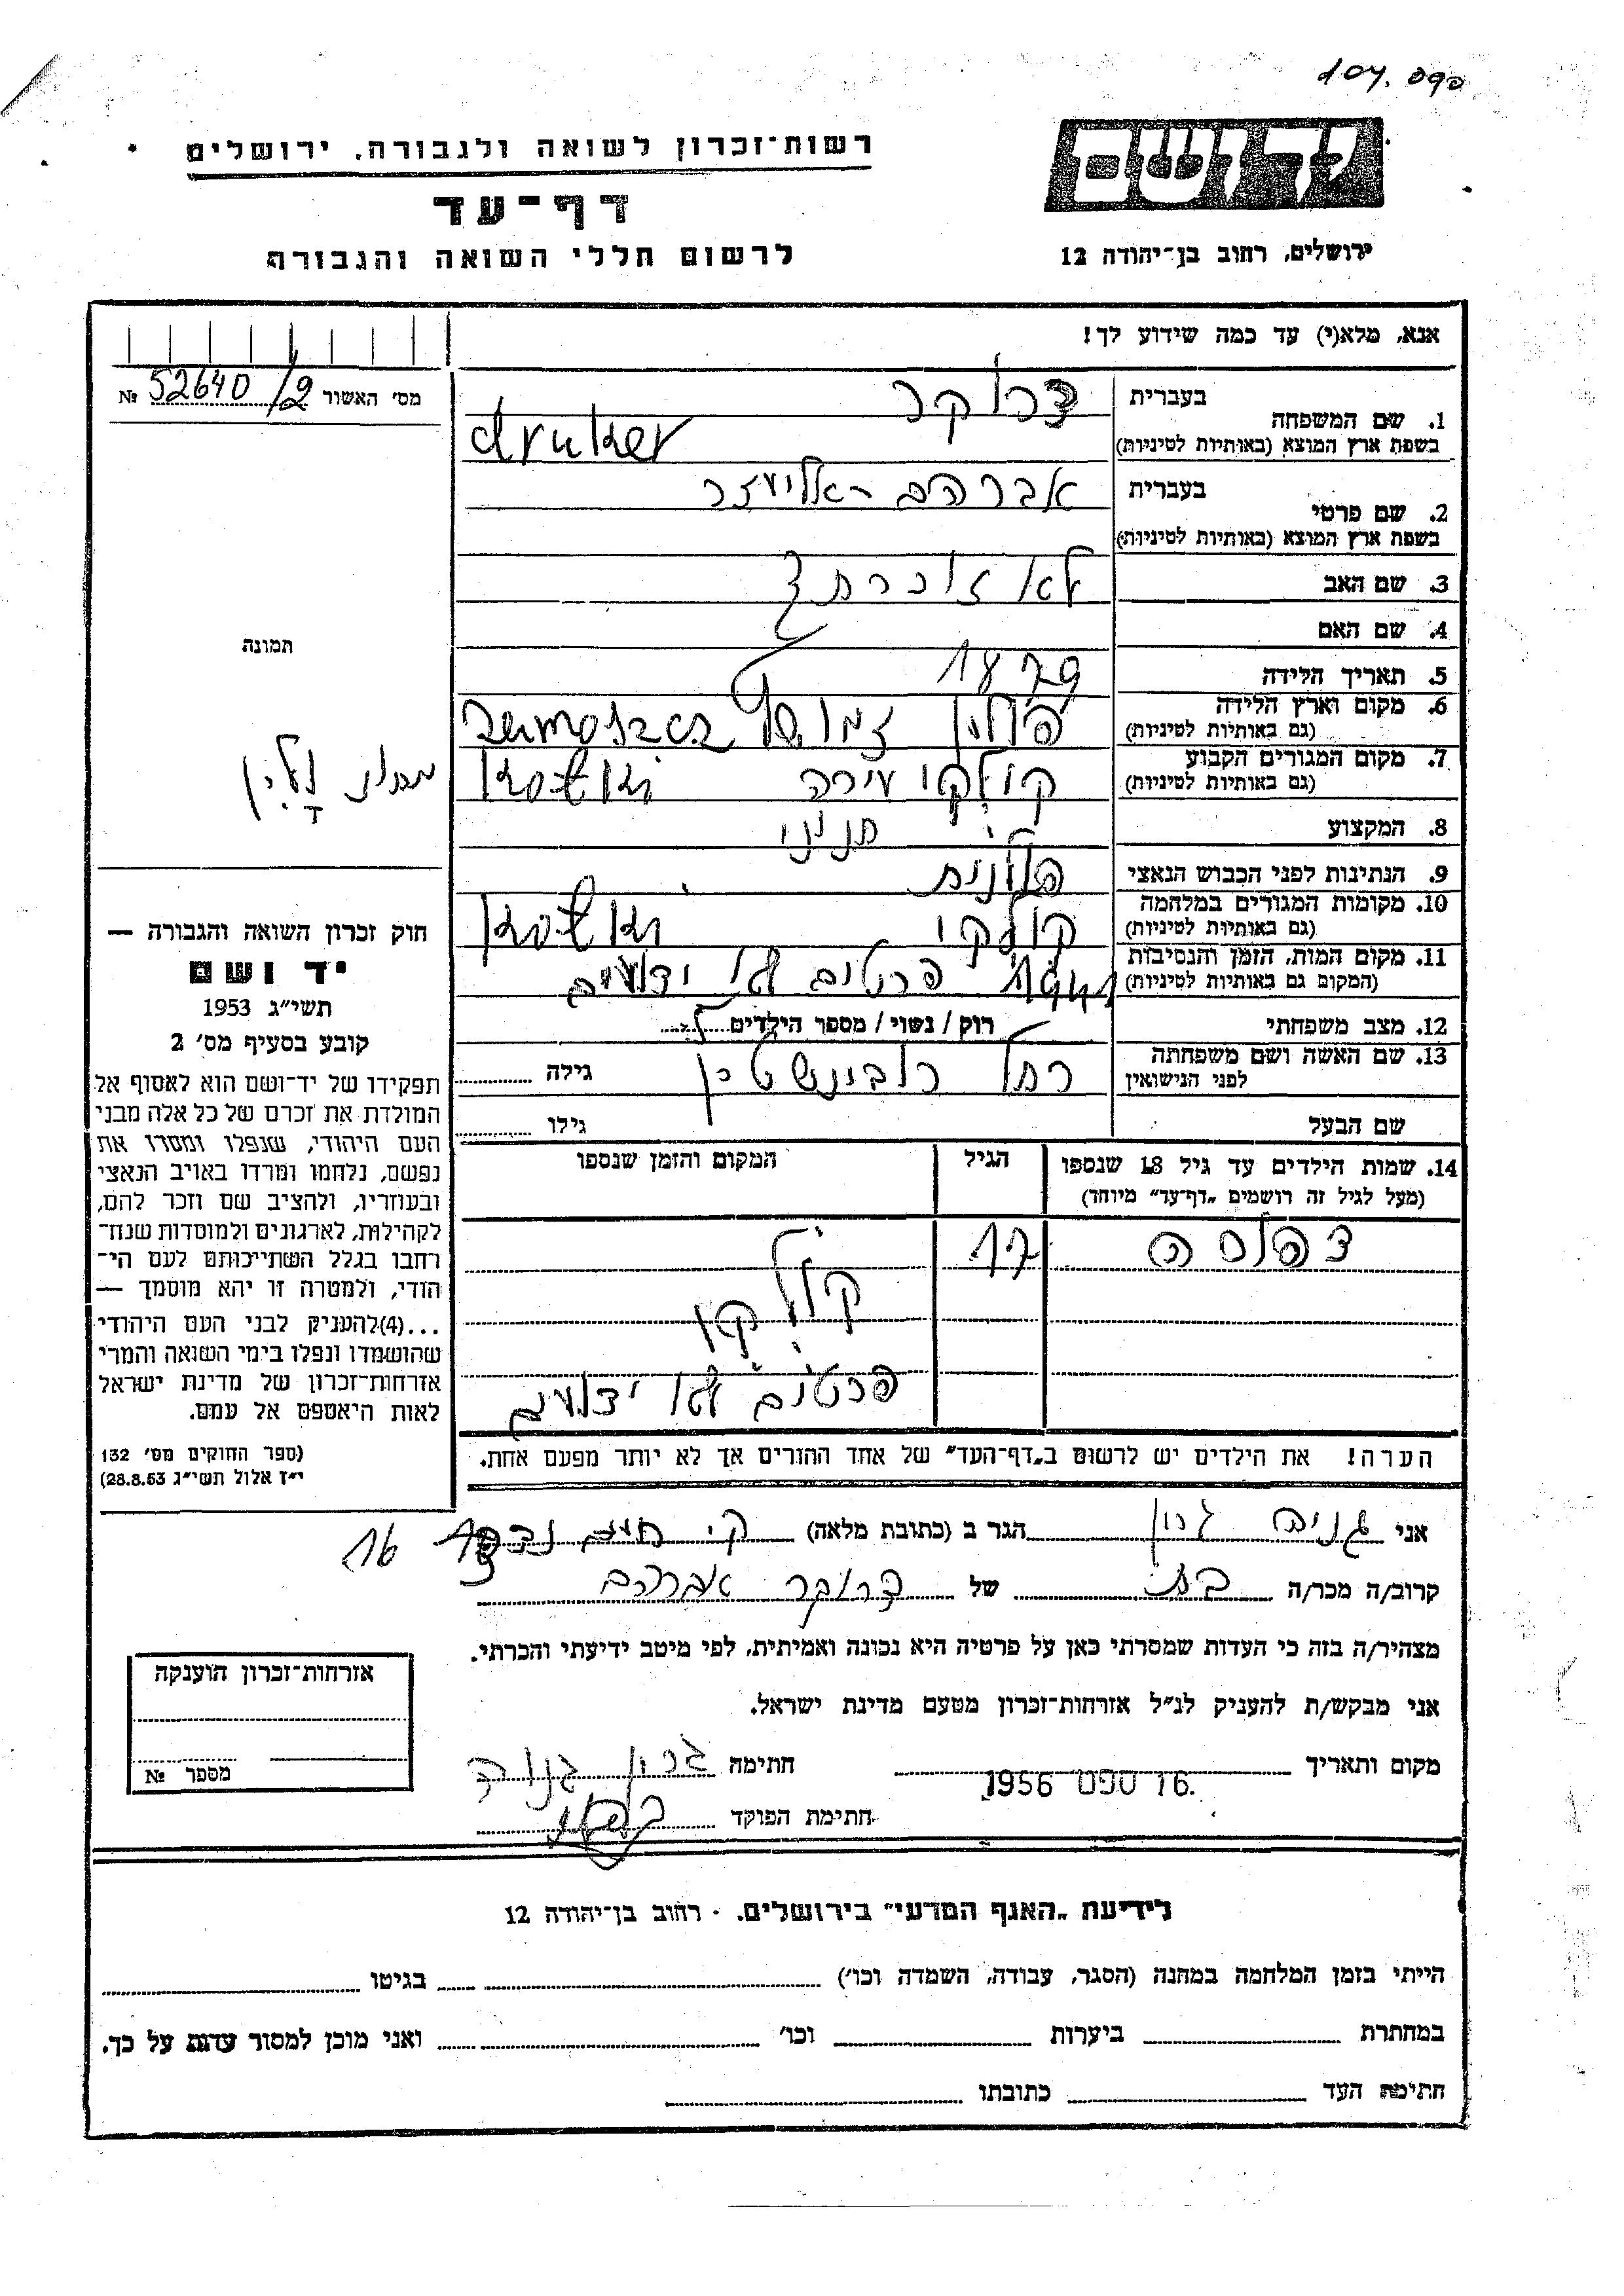 ידושם
ירושלים, רחוב בן־יהודה 12
רשות־זכרון לשואה ולגבורה, ירושלים
דף־עד
לרשום חללי השואה והגבורה
אנא, מלא(י) עד כמה שידוע לך!
מס׳ האשור 52640/2 №
1. שם המשפחה בעברית דרוקר
בשפת ארץ המוצא (באותיות לטיניות) druker
2. שם פרטי בעברית אברהם אליעזר
בשפת ארץ המוצא (באותיות לטיניות)
3. שם האב לא זוכרת
4. שם האם
5. תאריך הלידה 1879
6. מקום וארץ הלידה פולין
(גם באותיות לטיניות)
7. מקום המגורים הקבוע קולקי עירה
(גם באותיות לטיניות)
8. המקצוע
9. הנתינות לפני הכבוש הנאצי פולנית
10. מקומות המגורים במלחמה קולקי
(גם באותיות לטיניות)
11. מקום המות, הזמן והנסיבות פרטים לא ידועים
(המקום גם באותיות לטיניות)
12. מצב משפחתי רוק / נשוי / מספר הילדים
13. שם האשה ושם משפחתה לפני הנישואין רחל רובינשטיין גילה
שם הבעל גילו
14. שמות הילדים עד גיל 18 שנספו הגיל המקום והזמן שנספו
(מעל לגיל זה רושמים „דף־עד” מיוחד)
17
קולקי
פרטים לא ידועים
הערה! את הילדים יש לרשום ב„דף־העד” של אחד ההורים אך לא יותר מפעם אחת.
תמונה
חוק זכרון השואה והגבורה —
יד ושם
תשי״ג 1953
קובע בסעיף מס׳ 2
תפקידו של יד־ושם הוא לאסוף אל
המולדת את זכרם של כל אלה מבני
העם היהודי, שנפלו ומסרו את
נפשם, נלחמו ומרדו באויב הנאצי
ובעוזריו, ולהציב שם וזכר להם,
לקהילות, לארגונים ולמוסדות שנח־
רחבו בגלל השתייכותם לעם הי־
הודי, ולמטרה זו יהא מוסמך —
...(4)להעניק לבני העם היהודי
שהושמדו ונפלו בימי השואה והמרי
אזרחות־זכרון של מדינת ישראל
לאות היאספם אל עמם.
(ספר החוקים מס׳ 132
י״ז אלול תשי״ג 28.8.53)
אני הגר ב (כתובת מלאה) ק. חיים 16
קרוב/ה מכר/ה בת של דרוקר אברהם
מצהיר/ה בזה כי העדות שמסרתי כאן על פרטיה היא נכונה ואמיתית, לפי מיטב ידיעתי והכרתי.
אני מבקש/ת להעניק לנ״ל אזרחות־זכרון מטעם מדינת ישראל.
מקום ותאריך 16 ספט 1956 חתימה
חתימת הפוקד
אזרחות־זכרון הוענקה
מספר №
לידיעת „האגף המדעי” בירושלים. רחוב בן־יהודה 12
הייתי בזמן המלחמה במחנה (הסגר, עבודה, השמדה וכו׳) בגיטו
במחתרת ביערות וכו׳ ואני מוכן למסור עדות על כך.
חתימת העד כתובתו